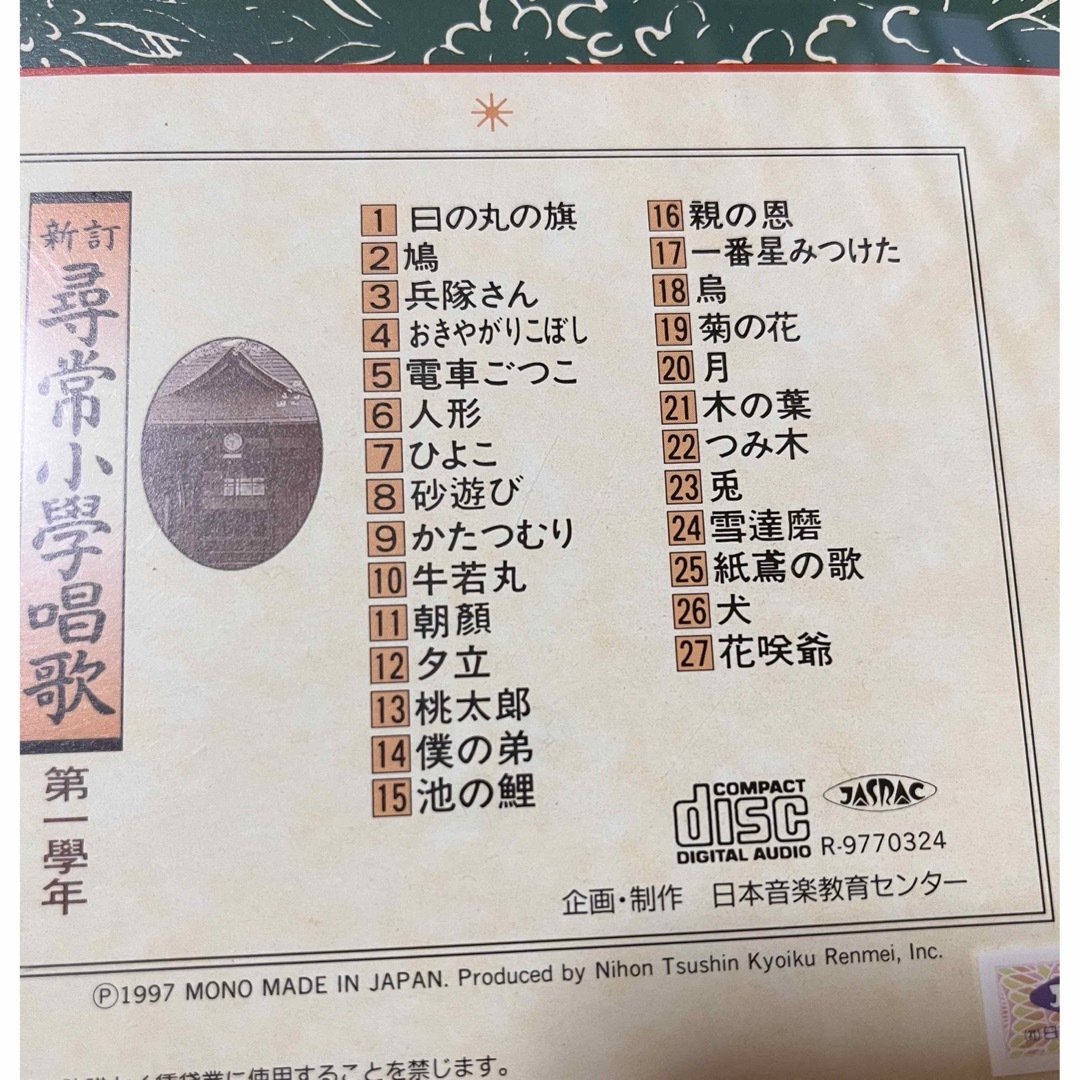 新訂
尋常小學唱歌
第一學年
1 日の丸の旗
2 鳩
3 兵隊さん
4 おきやがりこぼし
5 電車ごつこ
6 人形
7 ひよこ
8 砂遊び
9 かたつむり
10 牛若丸
11 朝顏
12 夕立
13 桃太郎
14 僕の弟
15 池の鯉
16 親の恩
17 一番星みつけた
18 烏
19 菊の花
20 月
21 木の葉
22 つみ木
23 兎
24 雪達磨
25 紙鳶の歌
26 犬
27 花咲爺
COMPACT
disc
DIGITAL AUDIO
JASRAC
R-9770324
企画・制作 日本音楽教育センター
Ⓟ1997 MONO MADE IN JAPAN. Produced by Nihon Tsushin Kyoiku Renmei, Inc.
賃貸業に使用することを禁じます。